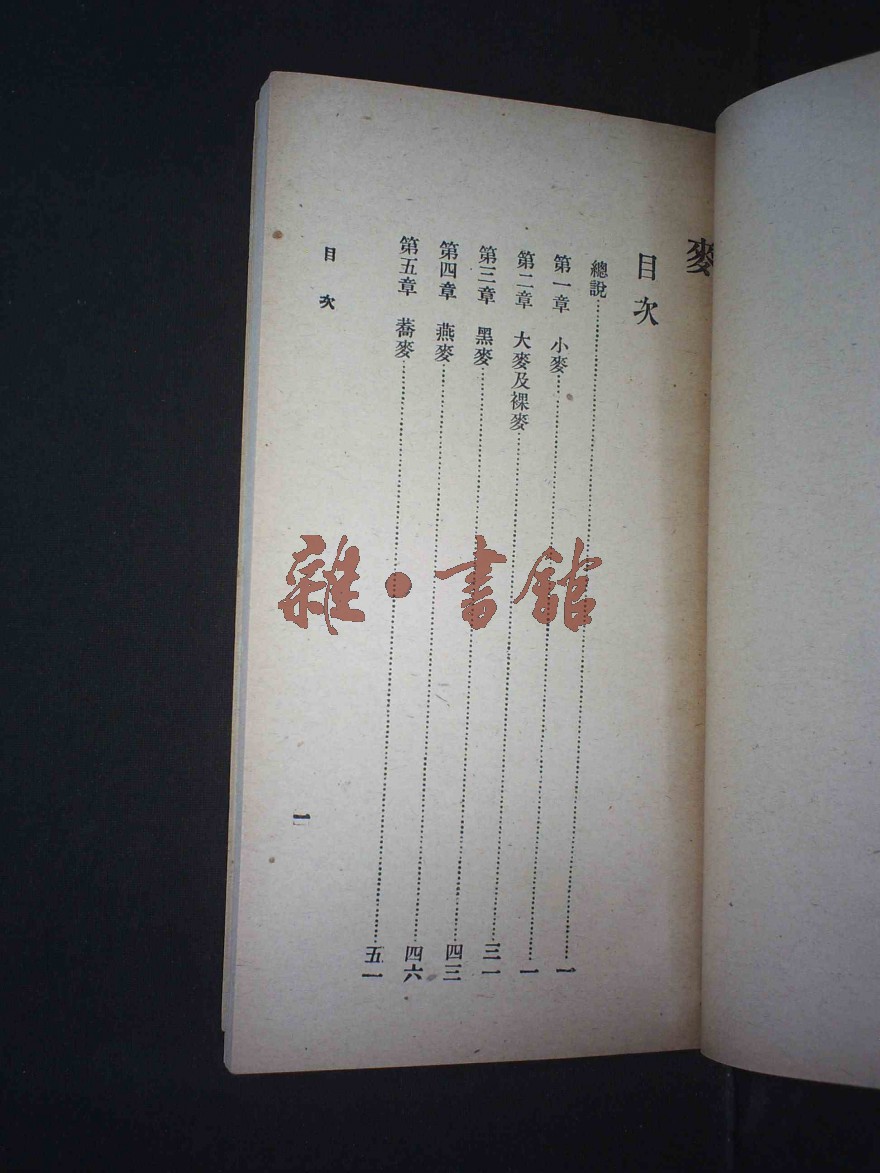 麥
目次
總說……一
第一章　小麥……一
第二章　大麥及裸麥……三一
第三章　黑麥……四三
第四章　燕麥……四六
第五章　蕎麥……五一
目次
一
雜·書館